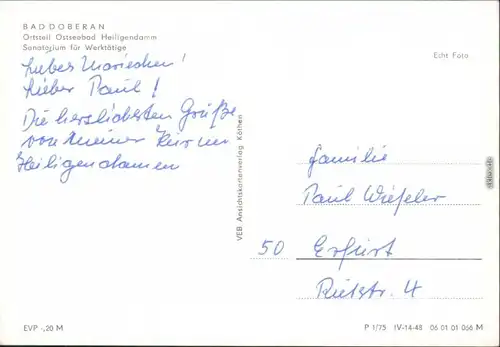 BAD DOBERAN
Ortsteil Ostseebad Heiligendamm
Sanatorium für Werktätige
Echt Foto
Liebes Mariechen!
Lieber Paul!
Die herzlichsten Grüße
von meiner Kur in
Heiligendamm
VEB Ansichtskartenverlag Köthen
Familie
Paul
50 Erfurt
EVP -,20 M
P 1/75 IV-14-48 06 01 01 066 M